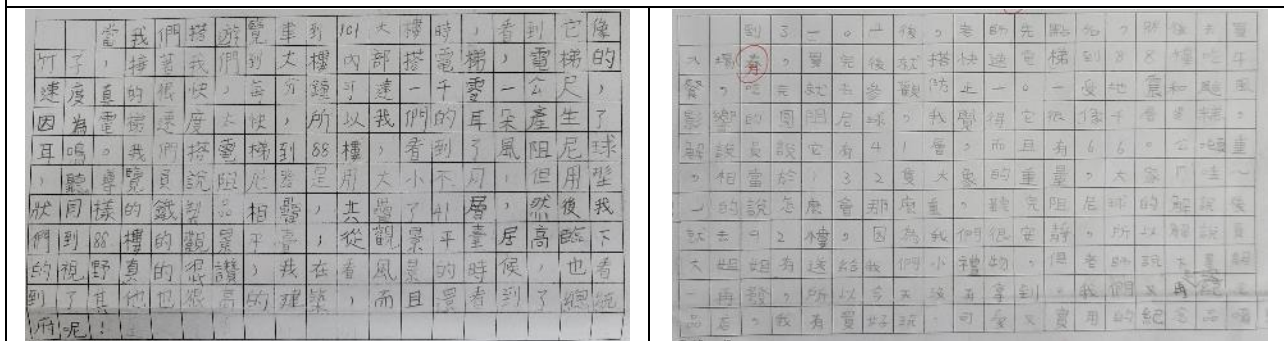 當我們搭遊覽車到101大樓時，看到它像
竹子，接著我們到大樓內部搭電梯，電梯的
速度真的很快，每分鐘可達一千零一公尺，
因為電梯速度太快，所以我們的耳朵產生了
耳鳴。我們搭電梯到88樓，看到了風阻尼球
，聽導覽員說阻尼器是用大小不同，但用型
狀同樣的鐵製品相疊，共疊了41層，然後我
們到88樓的觀景平臺，從觀景平臺居高臨下
的視野真的很讚，我在看風景的時候，也看
到了其他也很高的建築，而且還看到了總統
府呢！
到了一0一後，老師先點名，然後去買
大場券，買完後就搭快速電梯到88樓吃午
餐，吃完就去參觀防止一0一受地震和颱風
影響的風阻尼球，我覺得它很像千層蛋糕。
解說員說它有41層，而且有660公噸重
，相當於132隻大象的重量，大家「哇～
」的說怎麼會那麼重，聽完阻尼球的解說後
就去92樓，因為我們很安靜，所以解說員
大姐姐有送給我們小禮物，但老師說
一再發，所以今天沒有拿到。我們又再
品店，我有買好玩、可愛又實用的紀念品唷